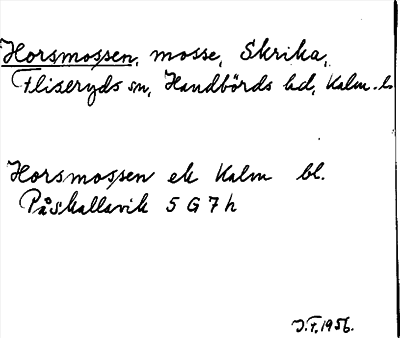 Horsmossen, mosse, Skrika,
Fliseryds sn, Handbörds hd, Kalm. l.
Horsmossen ek Kalm bl.
Påskallavik 5 G 7 h
J.F. 1956.